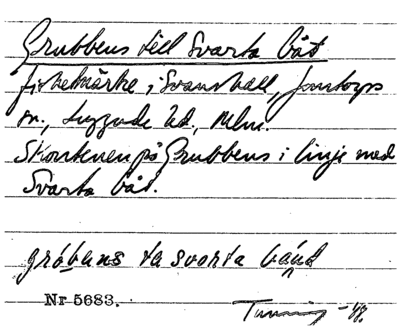 Grubbens till Svarta båt
fiskemärke i Svanshall, Jonstorps
sn., Luggude hd., Mlm.
Skorstenen på Grubbens i linje med
Svarta båt.
gröbens ta svarta båd
Nr 5683.